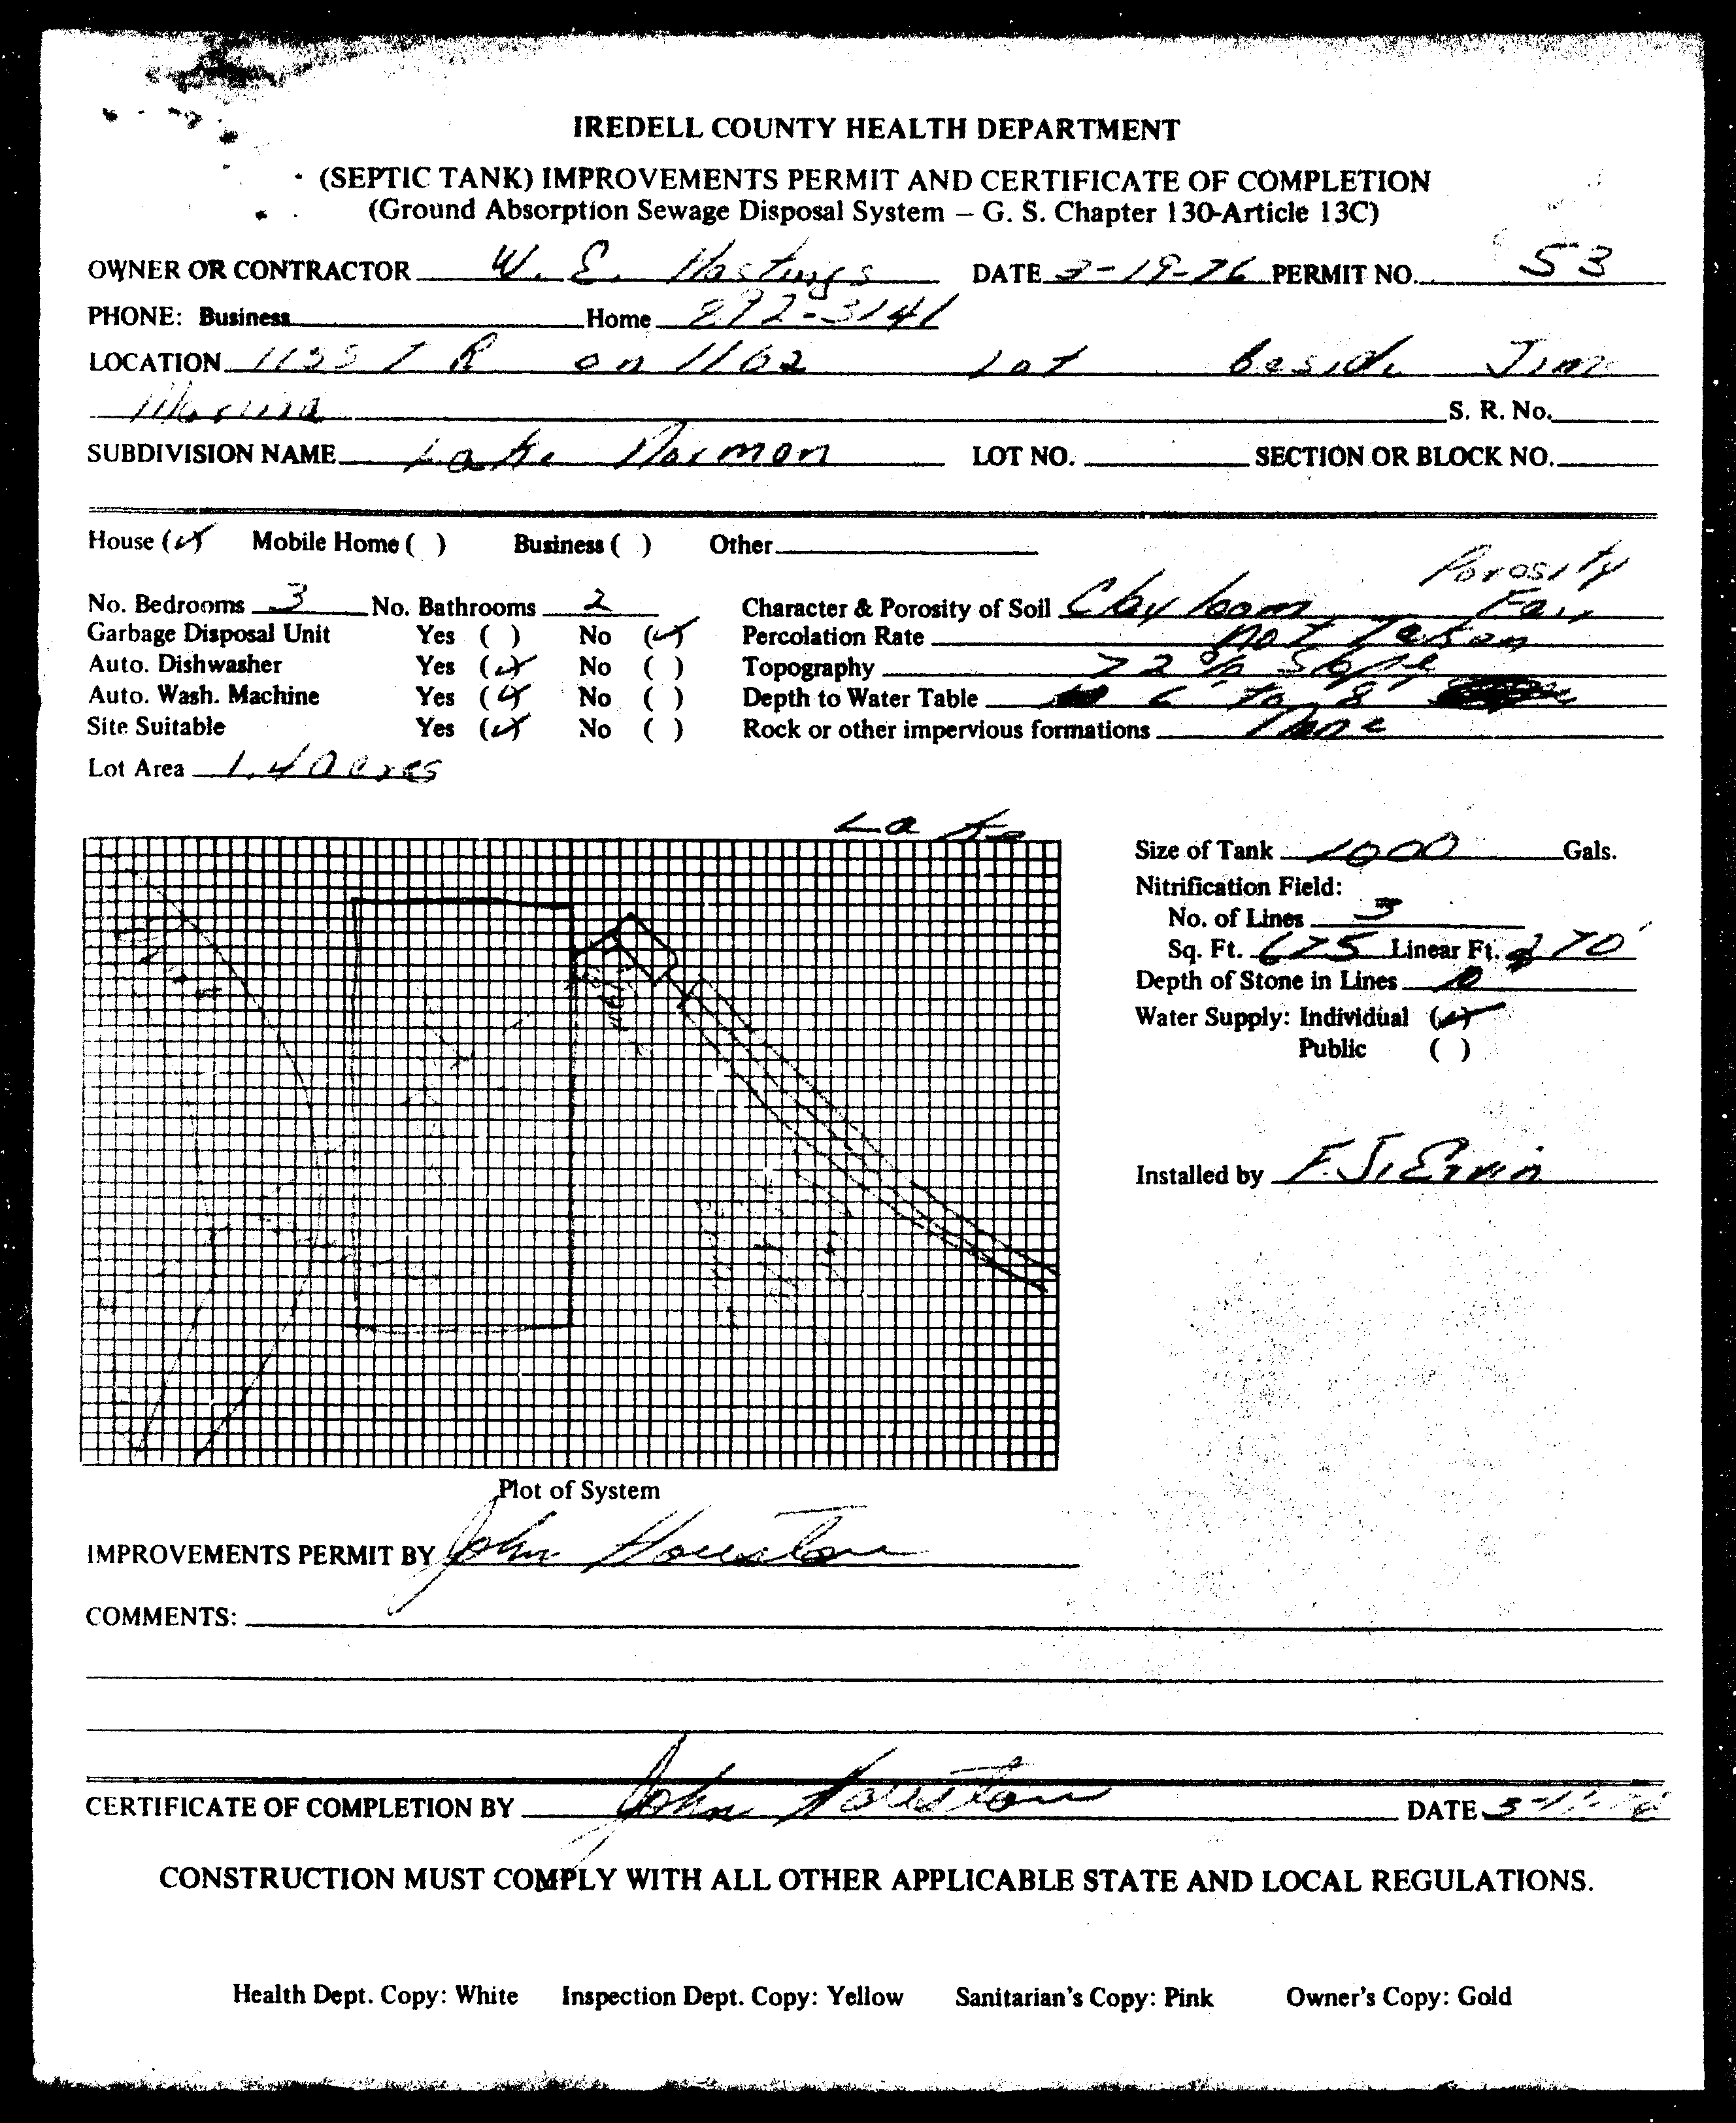 IREDELL COUNTY HEALTH DEPARTMENT
(SEPTIC TANK) IMPROVEMENTS PERMIT AND CERTIFICATE OF COMPLETION
(Ground Absorption Sewage Disposal System – G. S. Chapter 130-Article 13C)
OWNER OR CONTRACTOR W. E. Hastings DATE 2-19-76 PERMIT NO. 53
PHONE: Business Home 892-3141
LOCATION 1135 T R on 1162 Lot beside Jim
S. R. No.
SUBDIVISION NAME Lake Norman LOT NO. SECTION OR BLOCK NO.
House (✓) Mobile Home ( ) Business ( ) Other
Porosity
No. Bedrooms 3 No. Bathrooms 2 Character & Porosity of Soil Clay loam Fair
Garbage Disposal Unit Yes ( ) No (✓) Percolation Rate not Taken
Auto. Dishwasher Yes (✓) No ( ) Topography 22% Slope
Auto. Wash. Machine Yes (✓) No ( ) Depth to Water Table 6' to 8'
Site Suitable Yes (✓) No ( ) Rock or other impervious formations None
Lot Area 1.40 acres
Lake
Size of Tank 1000 Gals.
Nitrification Field:
No. of Lines 3
Sq. Ft. 675 Linear Ft. 270'
Depth of Stone in Lines 10
Water Supply: Individual (✓)
Public ( )
Installed by F. S. Ervin
Plot of System
IMPROVEMENTS PERMIT BY John Houston
COMMENTS:
CERTIFICATE OF COMPLETION BY John Houston DATE
CONSTRUCTION MUST COMPLY WITH ALL OTHER APPLICABLE STATE AND LOCAL REGULATIONS.
Health Dept. Copy: White Inspection Dept. Copy: Yellow Sanitarian's Copy: Pink Owner's Copy: Gold